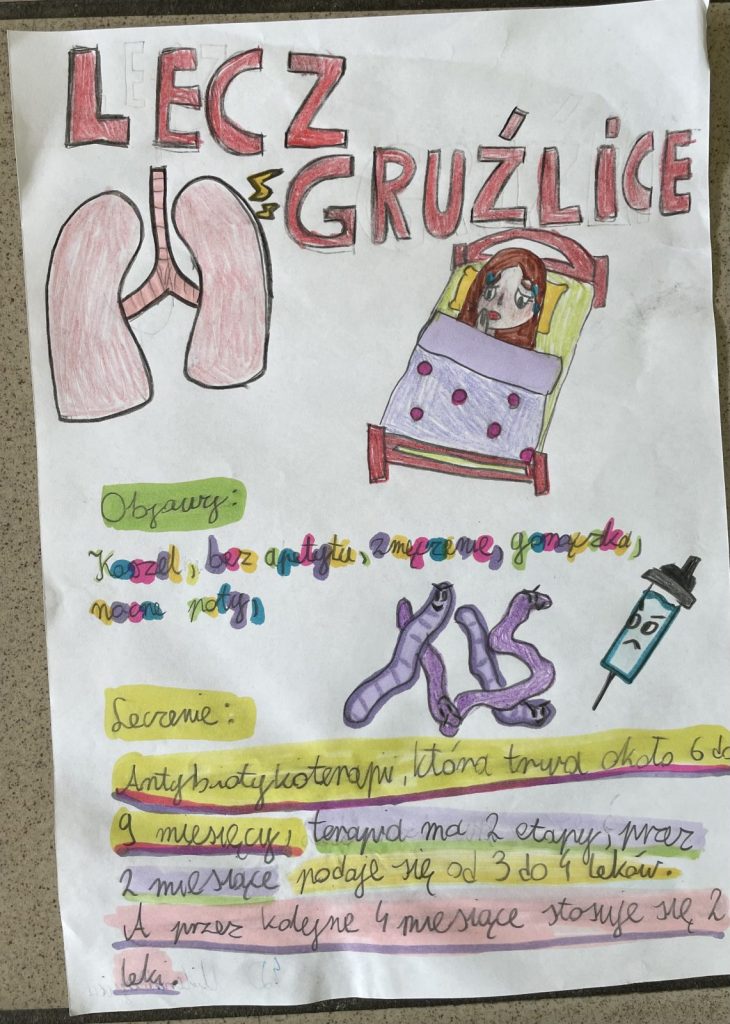 LECZ
GRUŹLICE
Objawy:
Kaszel, bez apetytu, zmęczenie, gorączka,
nocne poty,
Leczenie:
Antybiotykoterapi, która trwa około 6 do
9 miesięcy, terapia ma 2 etapy, przez
2 miesiące podaje się od 3 do 4 leków.
A przez kolejne 4 miesiące stosuje się 2
leki.